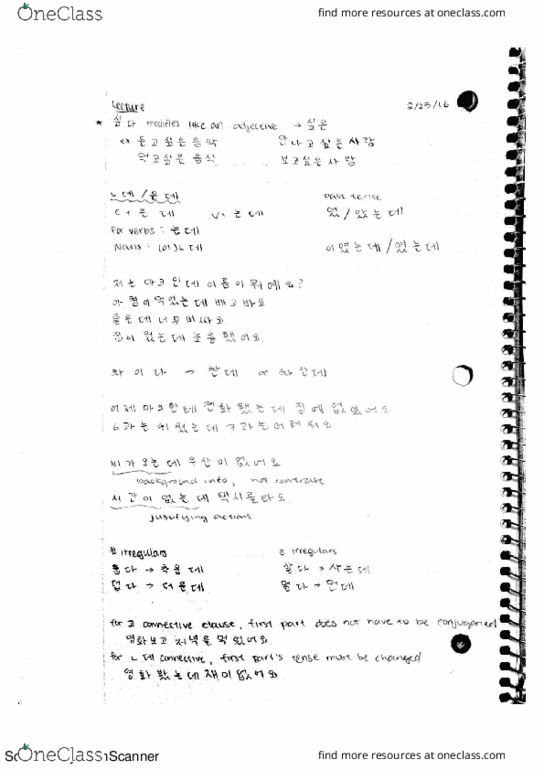 OneClass find more resources at oneclass.com
Lecture 2/25/16
* 싶다 modifies like an adjective → 싶은
ex. 듣고 싶은 음악 만나고 싶은 사람
먹고싶은 음식 보고싶은 사람
ㄴ데/은데 past tense
C + 은 데 V + 는 데 었/았는데
For verbs : 는데
Nouns : (이)ㄴ데 이었는데/였는데
저는 마크인데 이름이 뭐예요?
많이 먹었는데 배고파요
좋은데 너무 비싸요
집이 없는데
차이다 → 찬데 or 차인데
어제 마크한테 전화했는데 집에 없었어요
6과는 쉬웠는데 7과는 어려워요
비가 오는데 우산이 없어요
background info, not contrast
시간이 없는데 택시를타요.
justifying actions
ㅂ irregulars ㄹ irregulars
춥다 → 추운데 살다 → 사는데
덥다 → 더운데 멀다 → 먼데
for 고 connective clause, first part does not have to be conjugated
영화보고 저녁을 먹었어요
for ㄴ데 connective, first part's tense must be changed
영화 봤는데 재미없어요
OneClass Scanner find more resources at oneclass.com